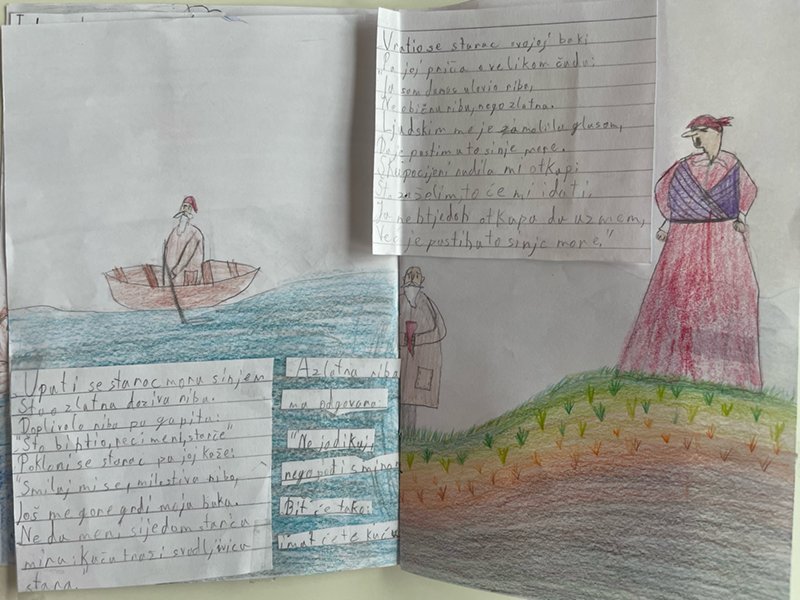 Uputi se starac moru sinjem
Stao zlatna doziva riba.
Doplivala riba pa zapita:
"Što bi htio, reci meni, starče"
Pokloni se starac pa joj kaže:
"Smiluj mi se, milostiva ribo,
još me gore grdi moja baka.
Ne da meni, sijedom starcu
mira: Kuću traži svadljivica
stara.
A zlatna riba
mu odgovara:
"Ne jadikuj,
nego pođi s mirom
Bit će tako:
imat ćete kuću
Vratio se starac svojoj baki
Pa joj priča o velikom čudu:
"Ja sam danas ulovio ribu,
Ne običnu ribu, nego zlatna.
Ljudskim me je zamolila glasom,
Da je pustim u to sinje more.
Skupocjeni nudila mi otkup:
Što zaželim, to će mi i dati,
Ja ne htjedoh otkupa da uzmem,
Već je pustih u to sinje more."